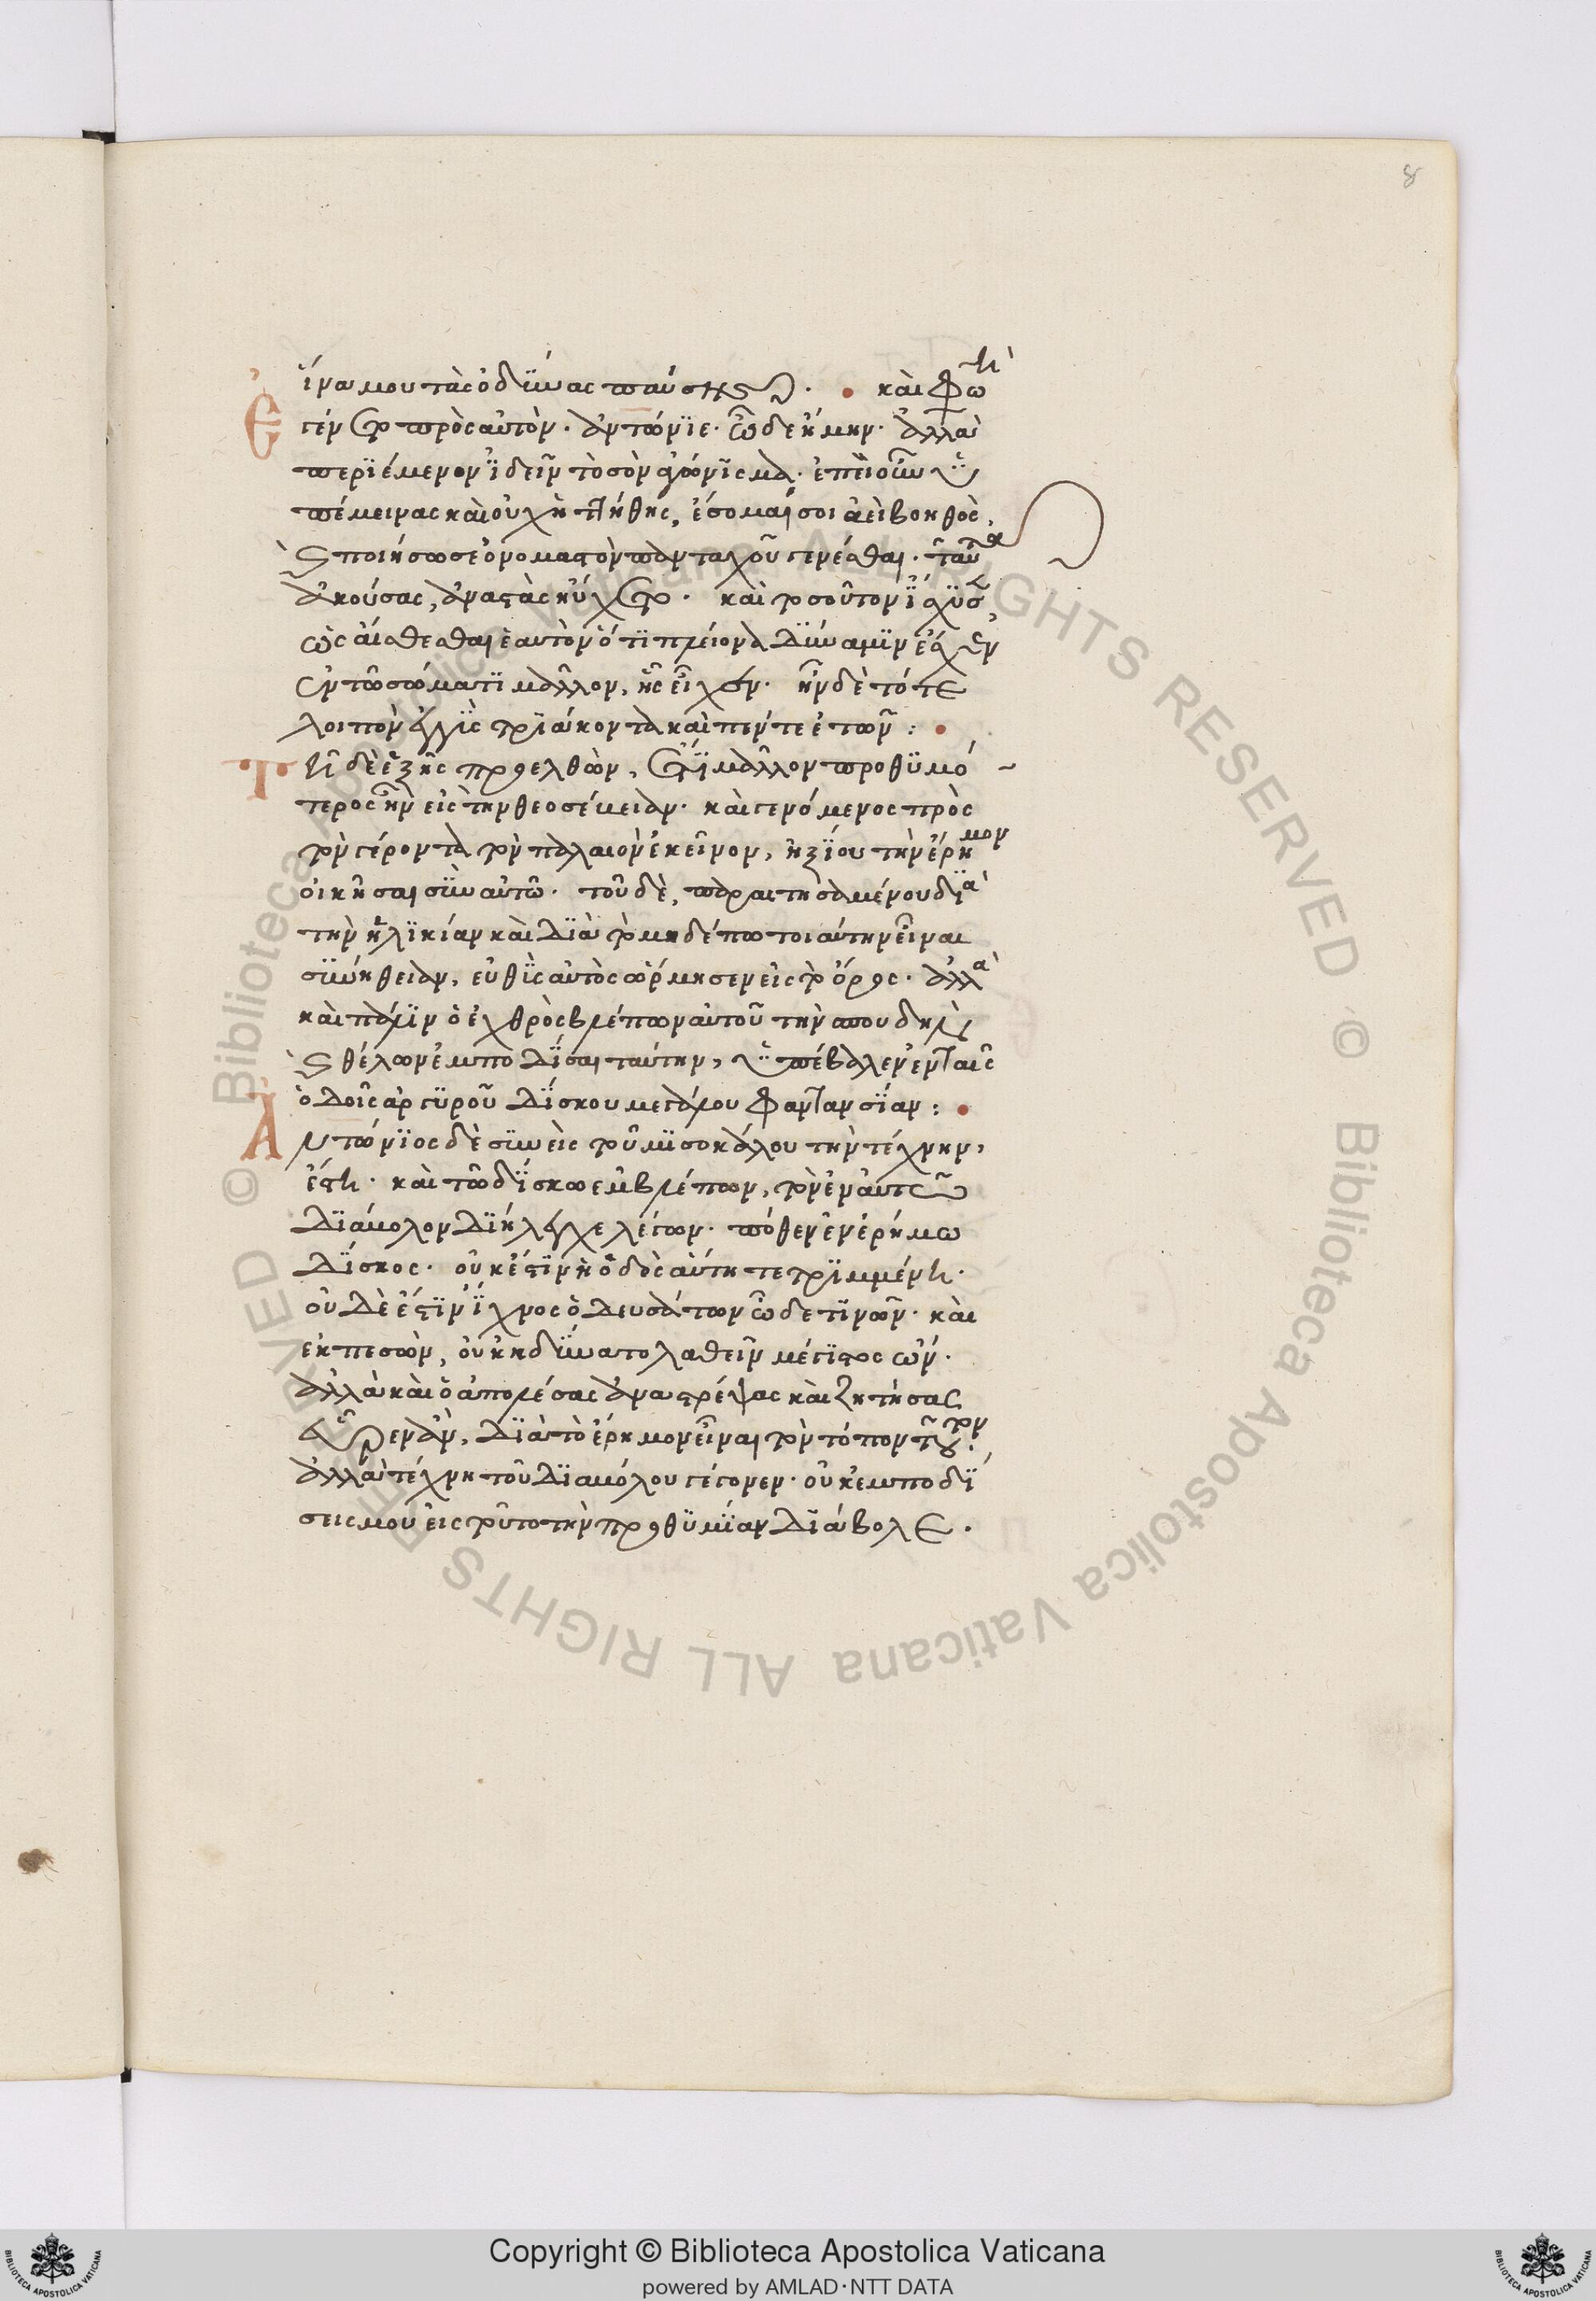 8
ἵνα μου τὰς ὀδύνας παύσης. καὶ φωνὴ
γέγονε πρὸς αὐτόν. ἀντώνιε. ὧδε ἤμην. ἀλλὰ
περιέμενον ἰδεῖν τὸ σὸν ἀγώνισμα. ἐπεὶ οὖν ὑ
πέμεινας καὶ οὐχ ἡττήθης, ἔσομαί σοι ἀεὶ βοηθὸς,
καὶ ποιήσω σε ὀνομαστὸν πανταχοῦ γενέσθαι. ταῦτα
ἀκούσας, ἀναστὰς ηὔχετο. καὶ τοσοῦτον ἴσχυσεν
ὡς αἰσθέσθαι ἑαυτὸν ὅτι πλείονα δύναμιν ἔσχεν
ἐν τῶ σώματι μᾶλλον, ἧς εἶχεν. ἦν δὲ τότε
λοιπὸν ἐγγὺς τριάκοντα καὶ πέντε ἐτῶν :
Τῆ δὲ ἑξῆς προελθὼν, ἔτι μᾶλλον προθυμό
τερος ἦν εἰς τὴν θεοσέβειαν. καὶ γενόμενος πρὸς
τὸν γέροντα τὸν παλαιὸν ἐκεῖνον, ἠξίου τὴν ἔρημον
οἰκῆσαι σὺν αὐτῶ. τοῦ δὲ, παραιτησαμένου διὰ
τὴν ἡλικίαν καὶ διὰ τὸ μηδέπω τοιαύτην εἶναι
συνήθειαν, εὐθὺς αὐτὸς ὥρμησεν εἰς τὸ ὄρος. ἀλλὰ
καὶ πάλιν ὁ ἐχθρὸς βλέπων αὐτοῦ τὴν σπουδὴν
καὶ θέλων ἐμποδίσαι ταύτην, ὑπέβαλεν ἐν ταῖς
ὁδοῖς ἀργυροῦ δίσκου μεγάλου φαντασίαν :
Ἀντώνιος δὲ συνεὶς τοῦ μισοκάλου τὴν τέχνην,
ἔστη. καὶ τῶ δίσκω ἐμβλέπων, τὸν ἐν αὐτῶ
διάβολον διήλεγχε λέγων. πόθεν ἐν ἐρήμω
δίσκος. οὐκ ἔστιν ἡ ὁδὸς αὕτη τετριμμένη.
οὐδὲ ἔστιν ἴχνος ὁδευσάντων ὧδε τινῶν. καὶ
ἐκπεσὼν, οὐκ ἠδύνατο λαθεῖν μέγιστος ὤν.
ἀλλὰ καὶ ὁ ἀπολέσας ἀναστρέψας καὶ ζητήσας
εὗρεν ἂν, διὰ τὸ ἔρημον εἶναι τὸν τόπον τοῦτον.
ἀλλὰ τέχνη τοῦ διαβόλου γέγονεν. οὐκ ἐμποδί
σεις μου εἰς τοῦτο τὴν προθυμίαν διάβολε.
Copyright © Biblioteca Apostolica Vaticana
powered by AMLAD·NTT DATA
© Biblioteca Apostolica Vaticana ALL RIGHTS RESERVED © Biblioteca Apostolica Vaticana ALL RIGHTS RESERVED
BIBLIOTECA APOSTOLICA VATICANA
BIBLIOTECA APOSTOLICA VATICANA